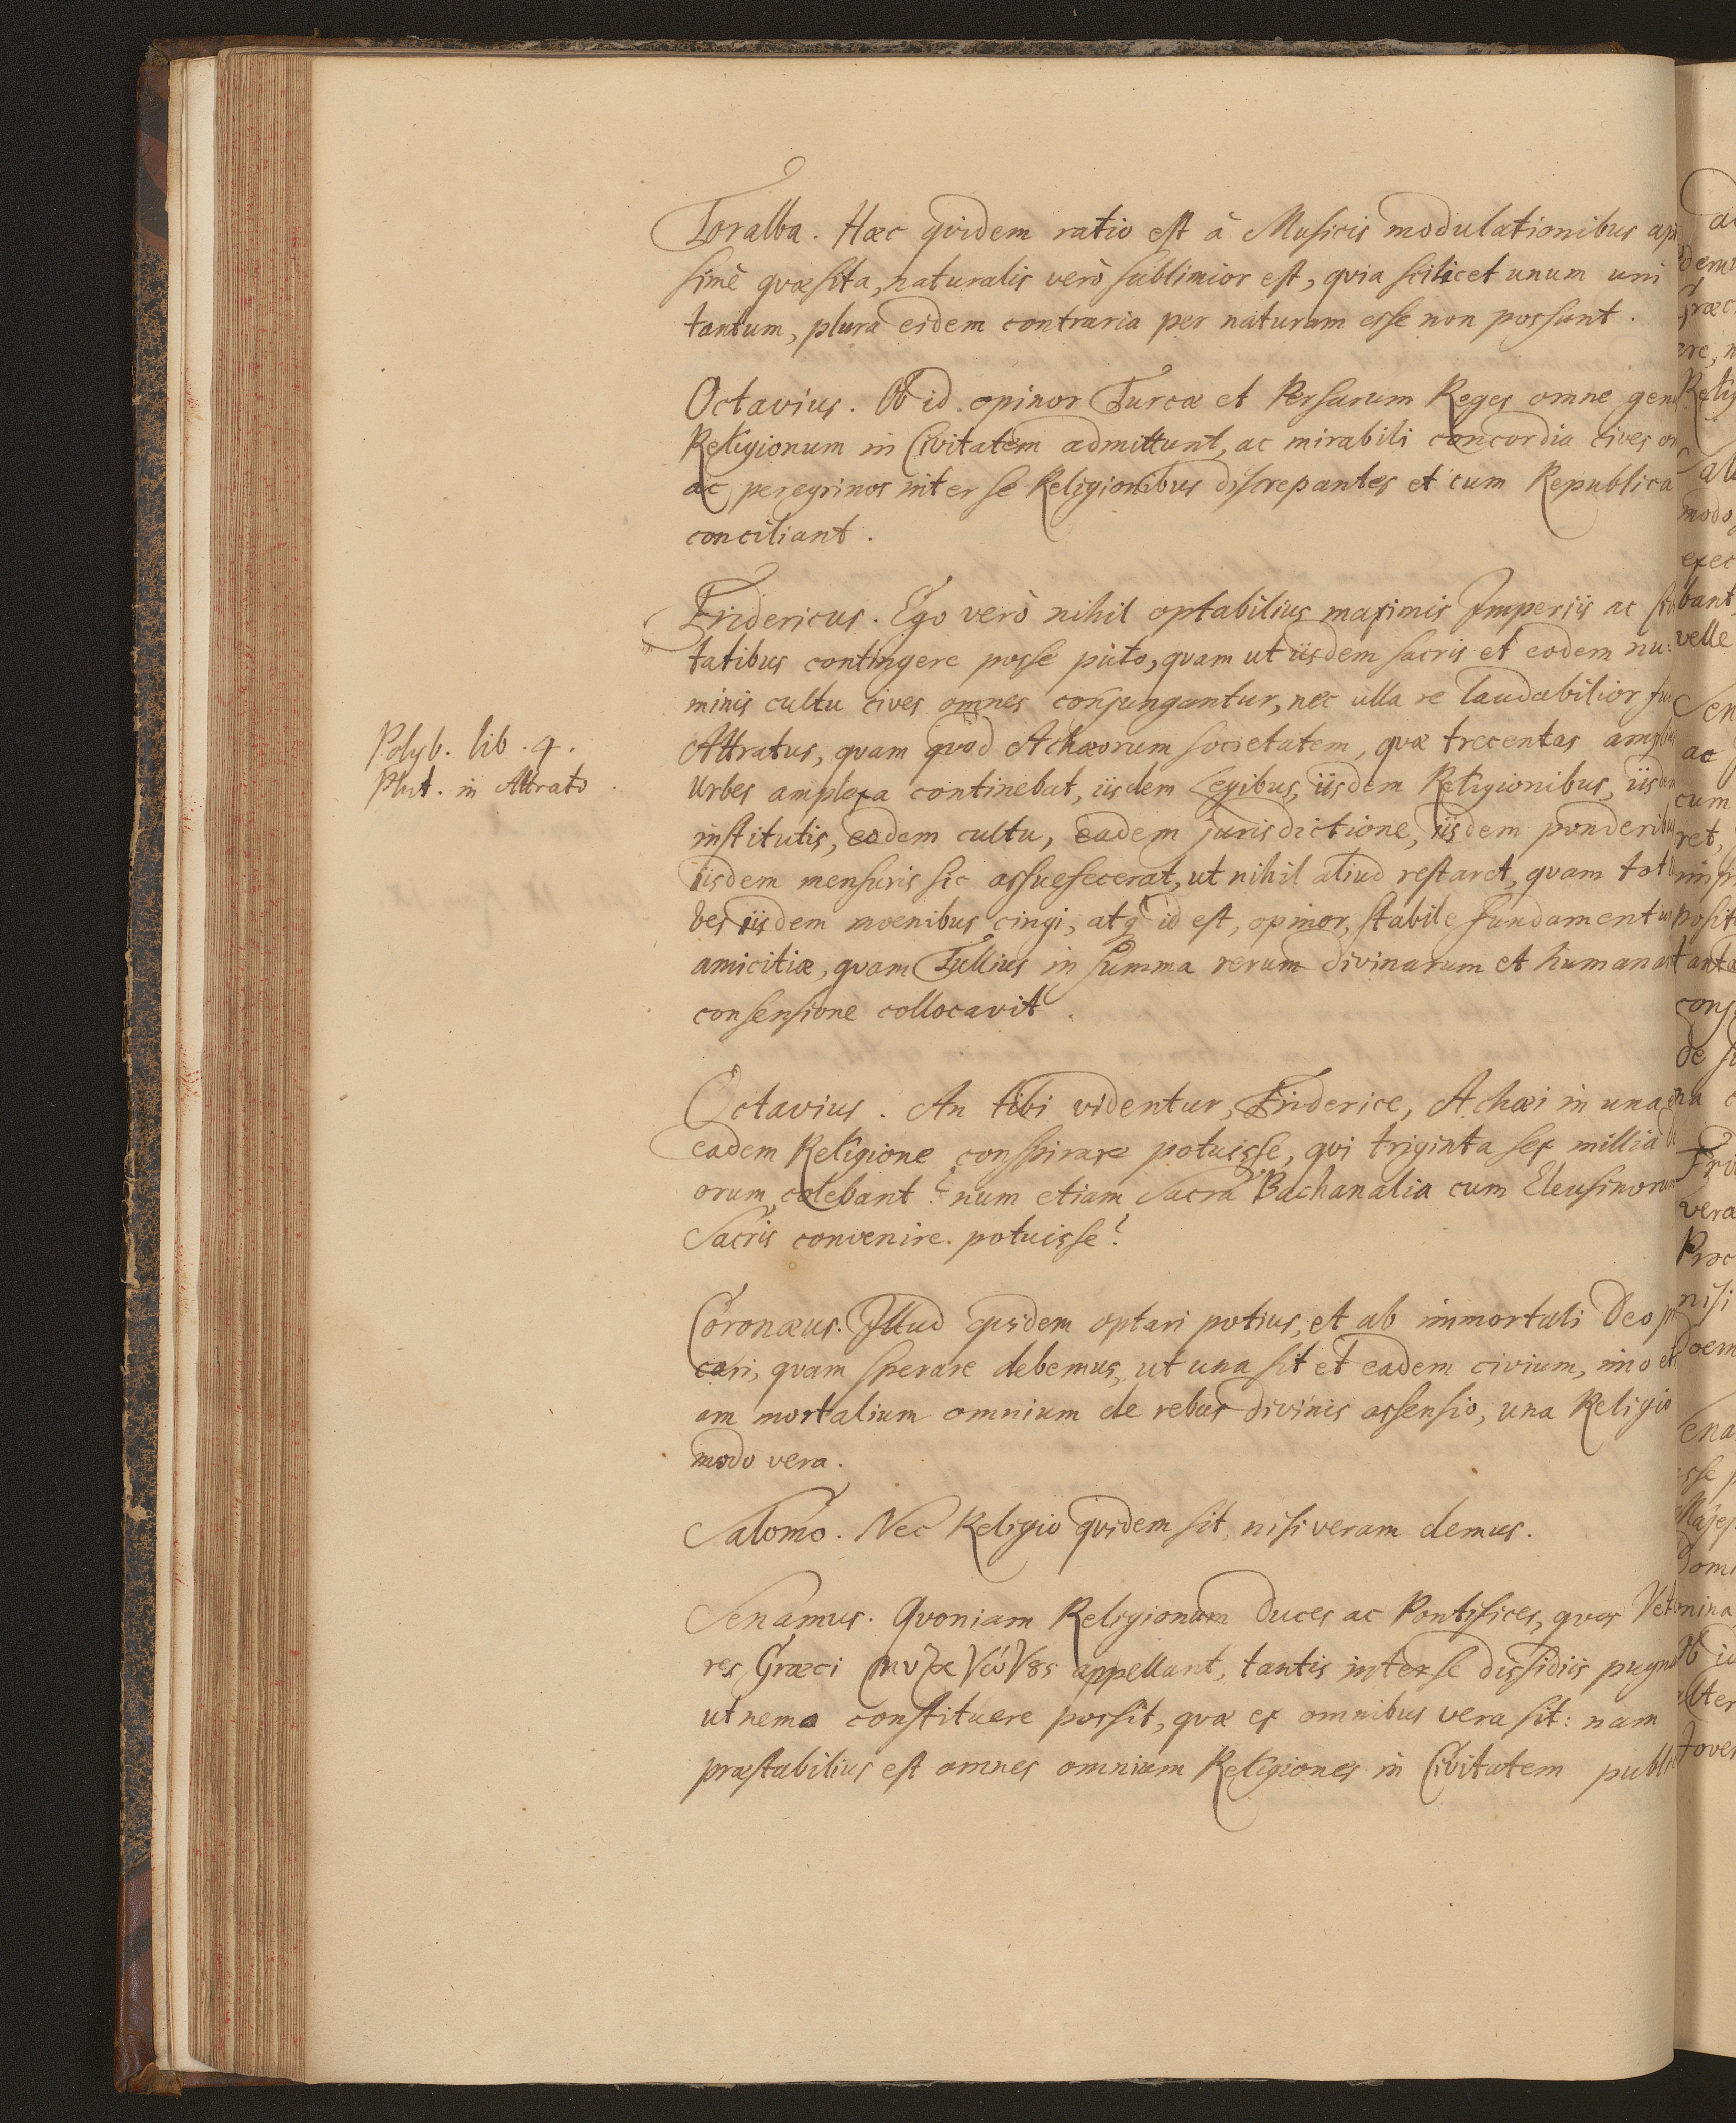 Toralba. Hæc quidem ratio est à Musicis modulationibus ap
simè quæsita, naturalis verò sublimior est, quia scilicet unum uni
tantum, plura eidem contraria per naturam esse non possunt.
Octavius. Ob id opinor Turcæ et Persarum Reges omne gen
Religionum in Civitatem admittunt, ac mirabili concordia cives
ac peregrinos inter se Religionibus discrepantes et cum Republica
conciliant.
Fridericus. Ego verò nihil optabilius maximis Imperiis ac
tatibus contingere posse puto, quam ut iisdem sacris et eodem nu:
minis cultu cives omnes conjungantur, nec ulla re laudabilior fu
Polyb. lib. 4.
Plut. in Attrato
Attratus, quam quod Achæorum societatem, quæ trecentas
Urbes amplexa continebat, iisdem Legibus, iisdem Religionibus, iisdem
institutis, eodem cultu, eadem jurisdictione, iisdem ponderibus
iisdem mensuris sic assuefecerat, ut nihil aliud restaret, quam tot
bes iisdem moenibus cingi, atq id est, opinor, stabile fundamentum
amicitiæ, quam Tullius in summa rerum divinarum et humana
consensione collocavit.
Octavius. An tibi videntur, Friderice, Achæi in una
eadem Religione conspirare potuisse, qui triginta sex millia
orum colebant? num etiam Sacra Bachanalia cum Eleusinorum
Sacris convenire potuisse?
Coronæus. Illud quidem optari potius, et ab immortali Deo
cari, quam sperare debemus, ut una sit et eadem civium, imo et
am mortalium omnium de rebus divinis assensio, una Religio
modo vera.
Salomo. Nec Religio quidem sit, nisi veram demus.
Senamus. Quoniam Religionum Duces ac Pontifices, quos Vete
res Græci appellant, tantis inter se dissidiis pugn
ut nemo constituere possit, quæ ex omnibus vera sit: nam
præstabilius est omnes omnium Religiones in Civitatem publi